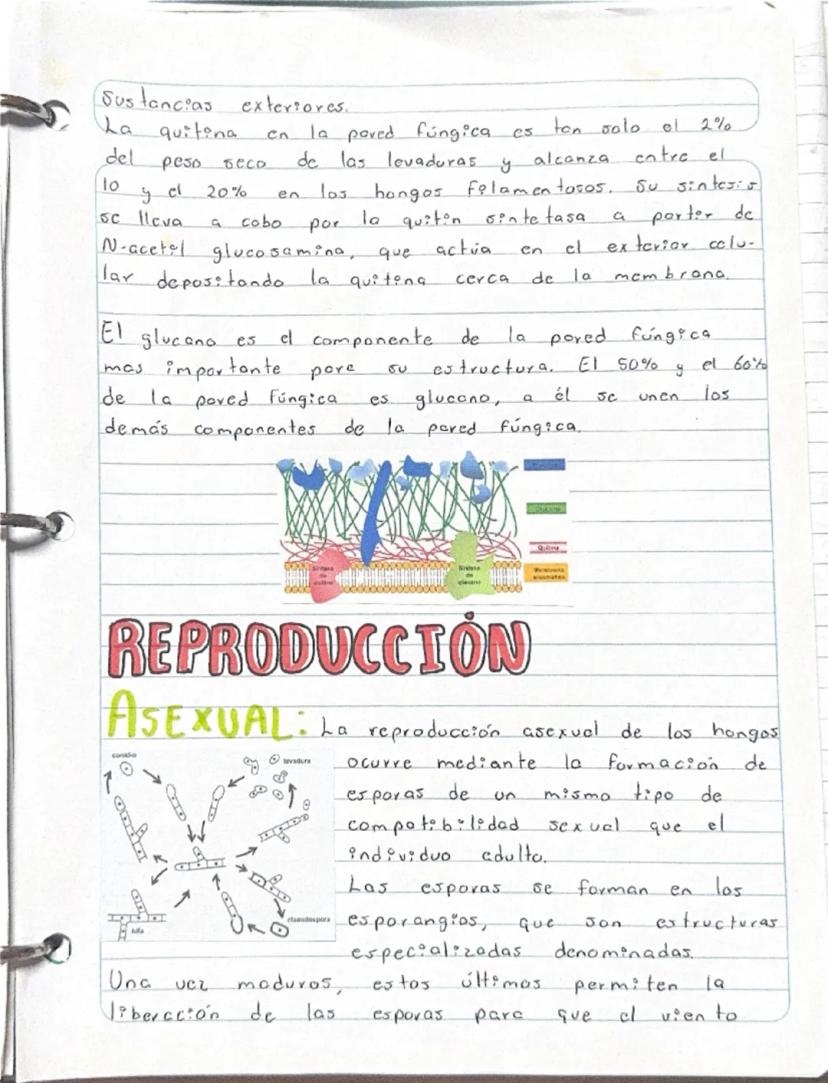 Sustancias exteriores.
La quitina en la pared fúngica es tan solo el 2%
del peso seco de las levaduras y alcanza entre el
10 y el 20% en los hongos filamentosos. Su síntesis
se lleva a cabo por la quitin sintetasa a partir de
N-acetil glucosamina, que actúa en el exterior celu-
lar depositando la quitina cerca de la membrana.
El glucano es el componente de la pared fúngica
mas importante para su estructura. El 50% y el 60%
de la pared fúngica es glucano, a él se unen los
demás componentes de la pared fúngica.
Quitina
Síntasa de
Síntasa de glucano
Membrana
REPRODUCCIÓN
ASEXUAL: La reproducción asexual de los hongos
ocurre mediante la formación de
esporas de un mismo tipo de
compatibilidad sexual que el
individuo adulto.
Las esporas se forman en los
esporangios, que son estructuras
especializadas denominadas.
conidio
levadura
hifa
clamidospora
Una vez maduros, estos últimos permiten la
liberación de las esporas para que el viento